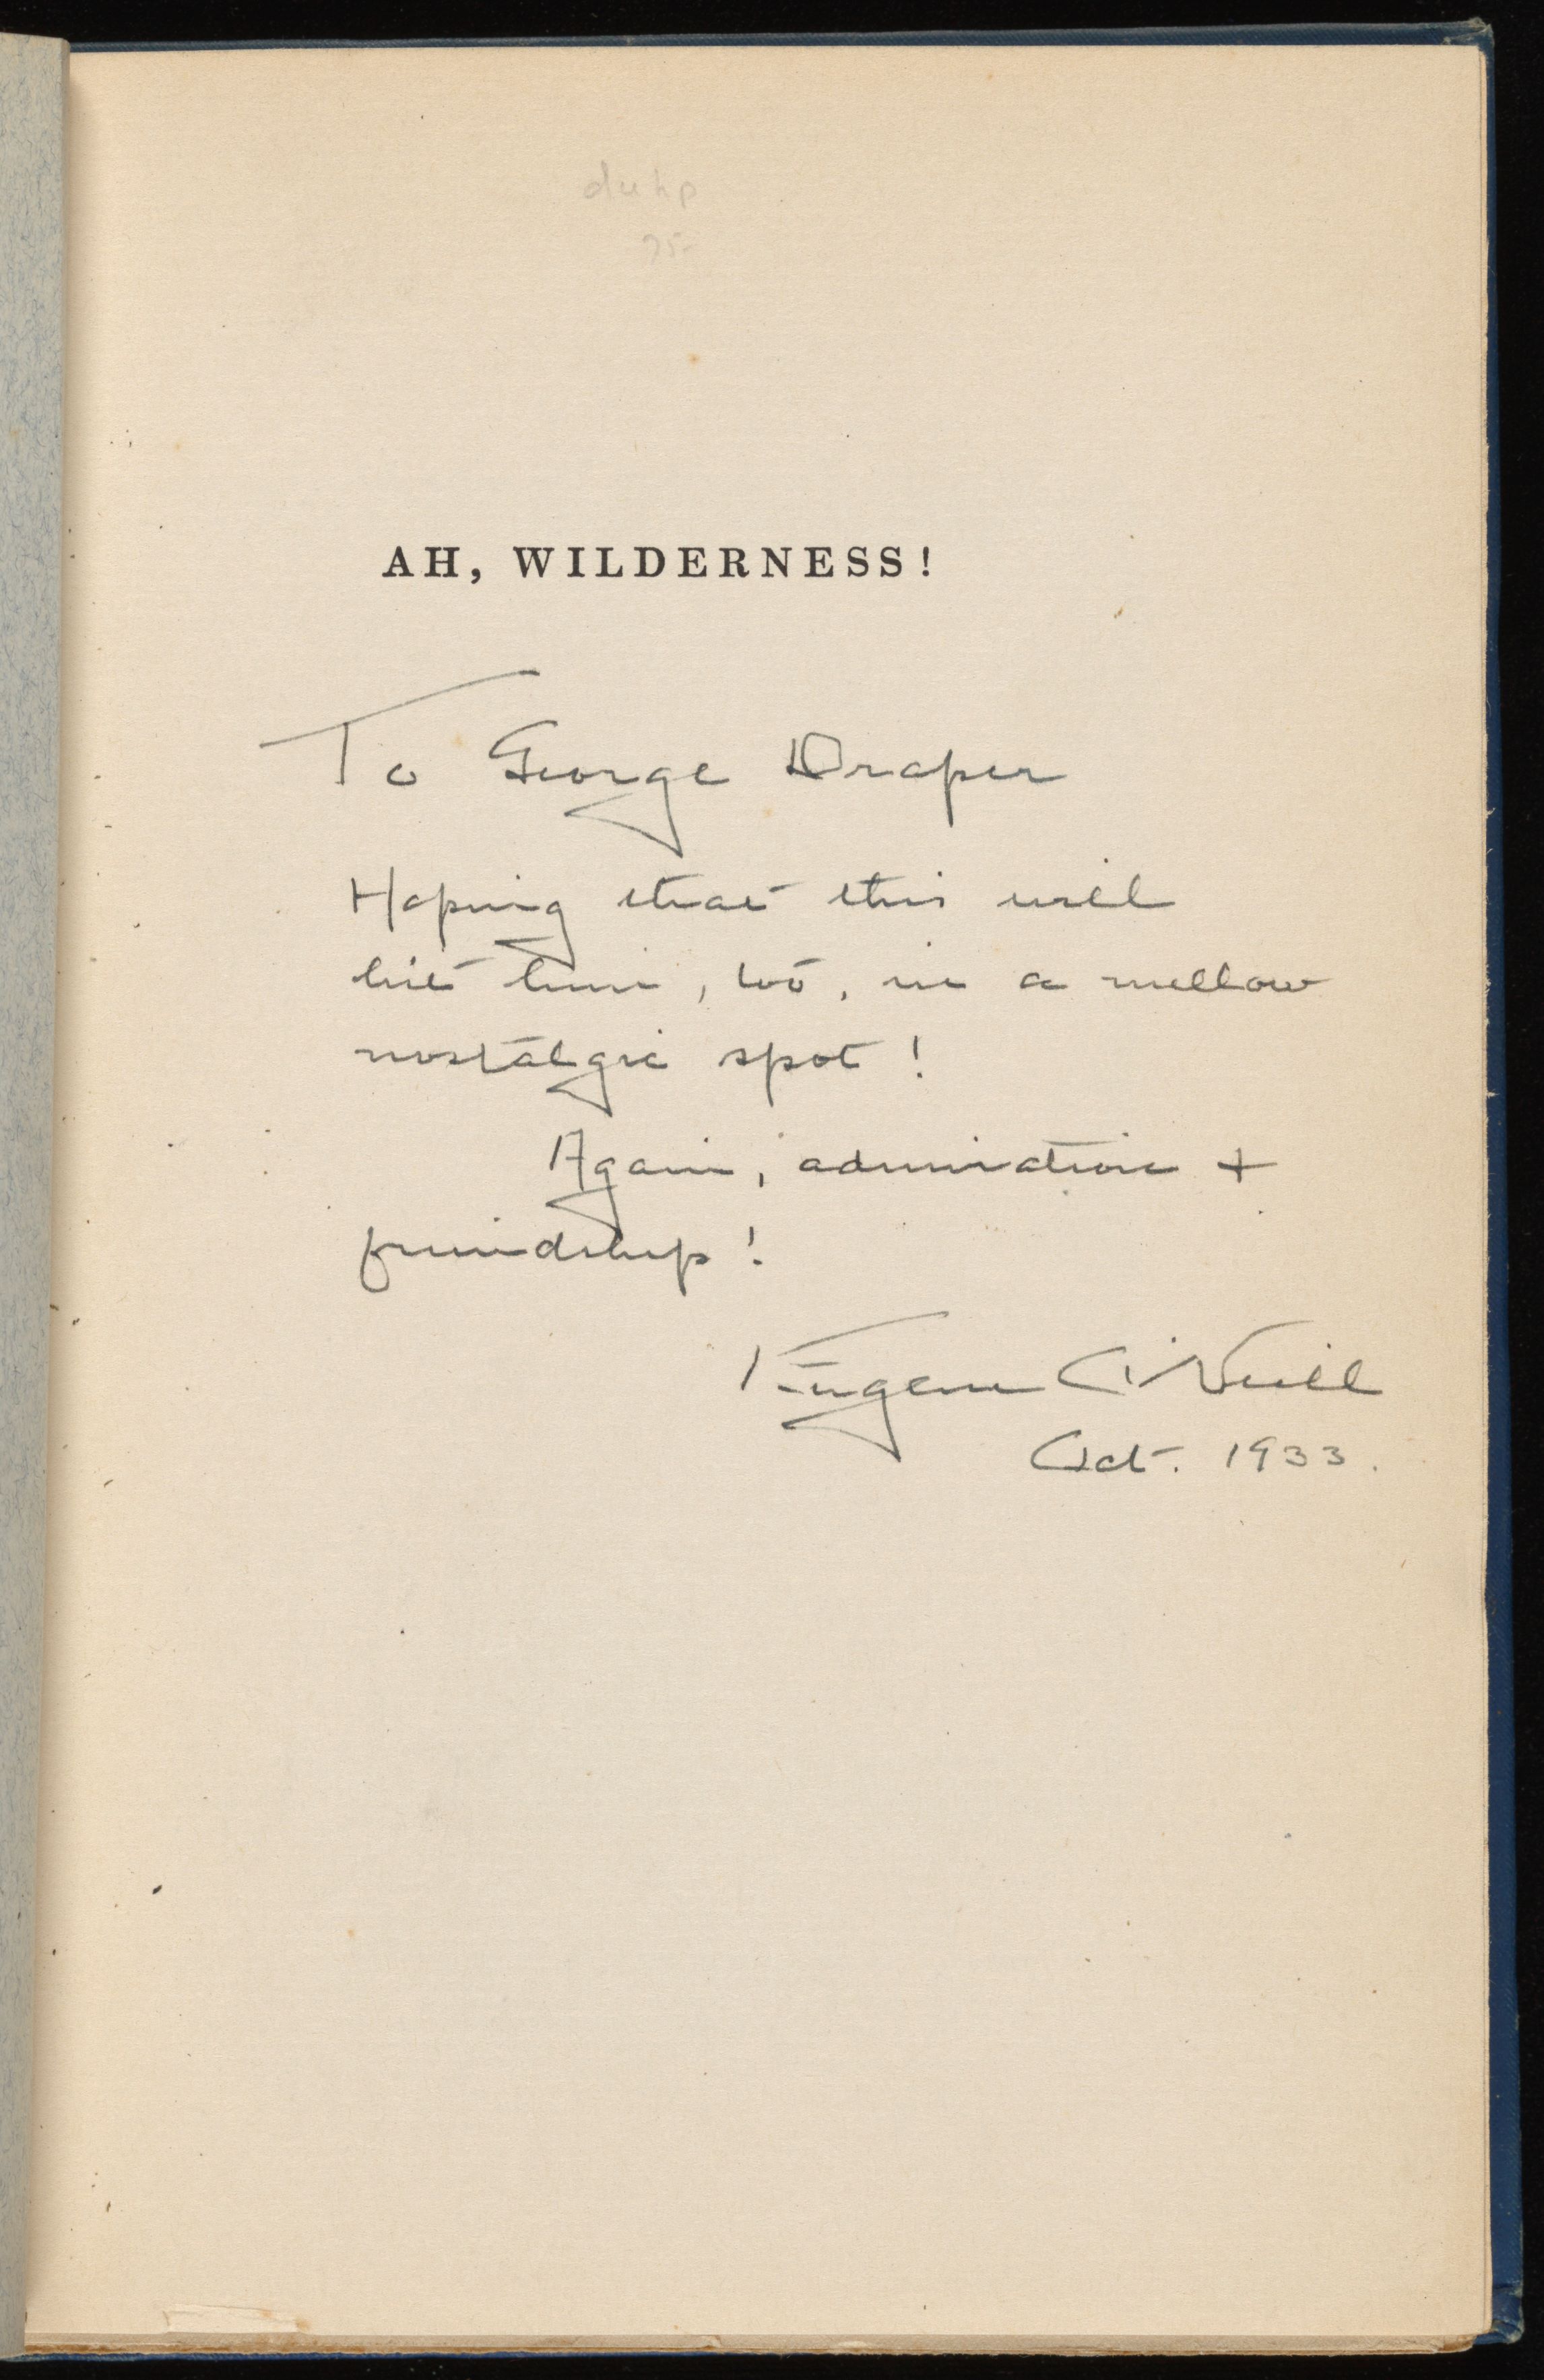 AH, WILDERNESS!
To George Draper
Hoping that this will
hit him, too, in a mellow
nostalgic spot!
Again, admiration +
friendship!
Eugene O'Neill
Oct. 1933.